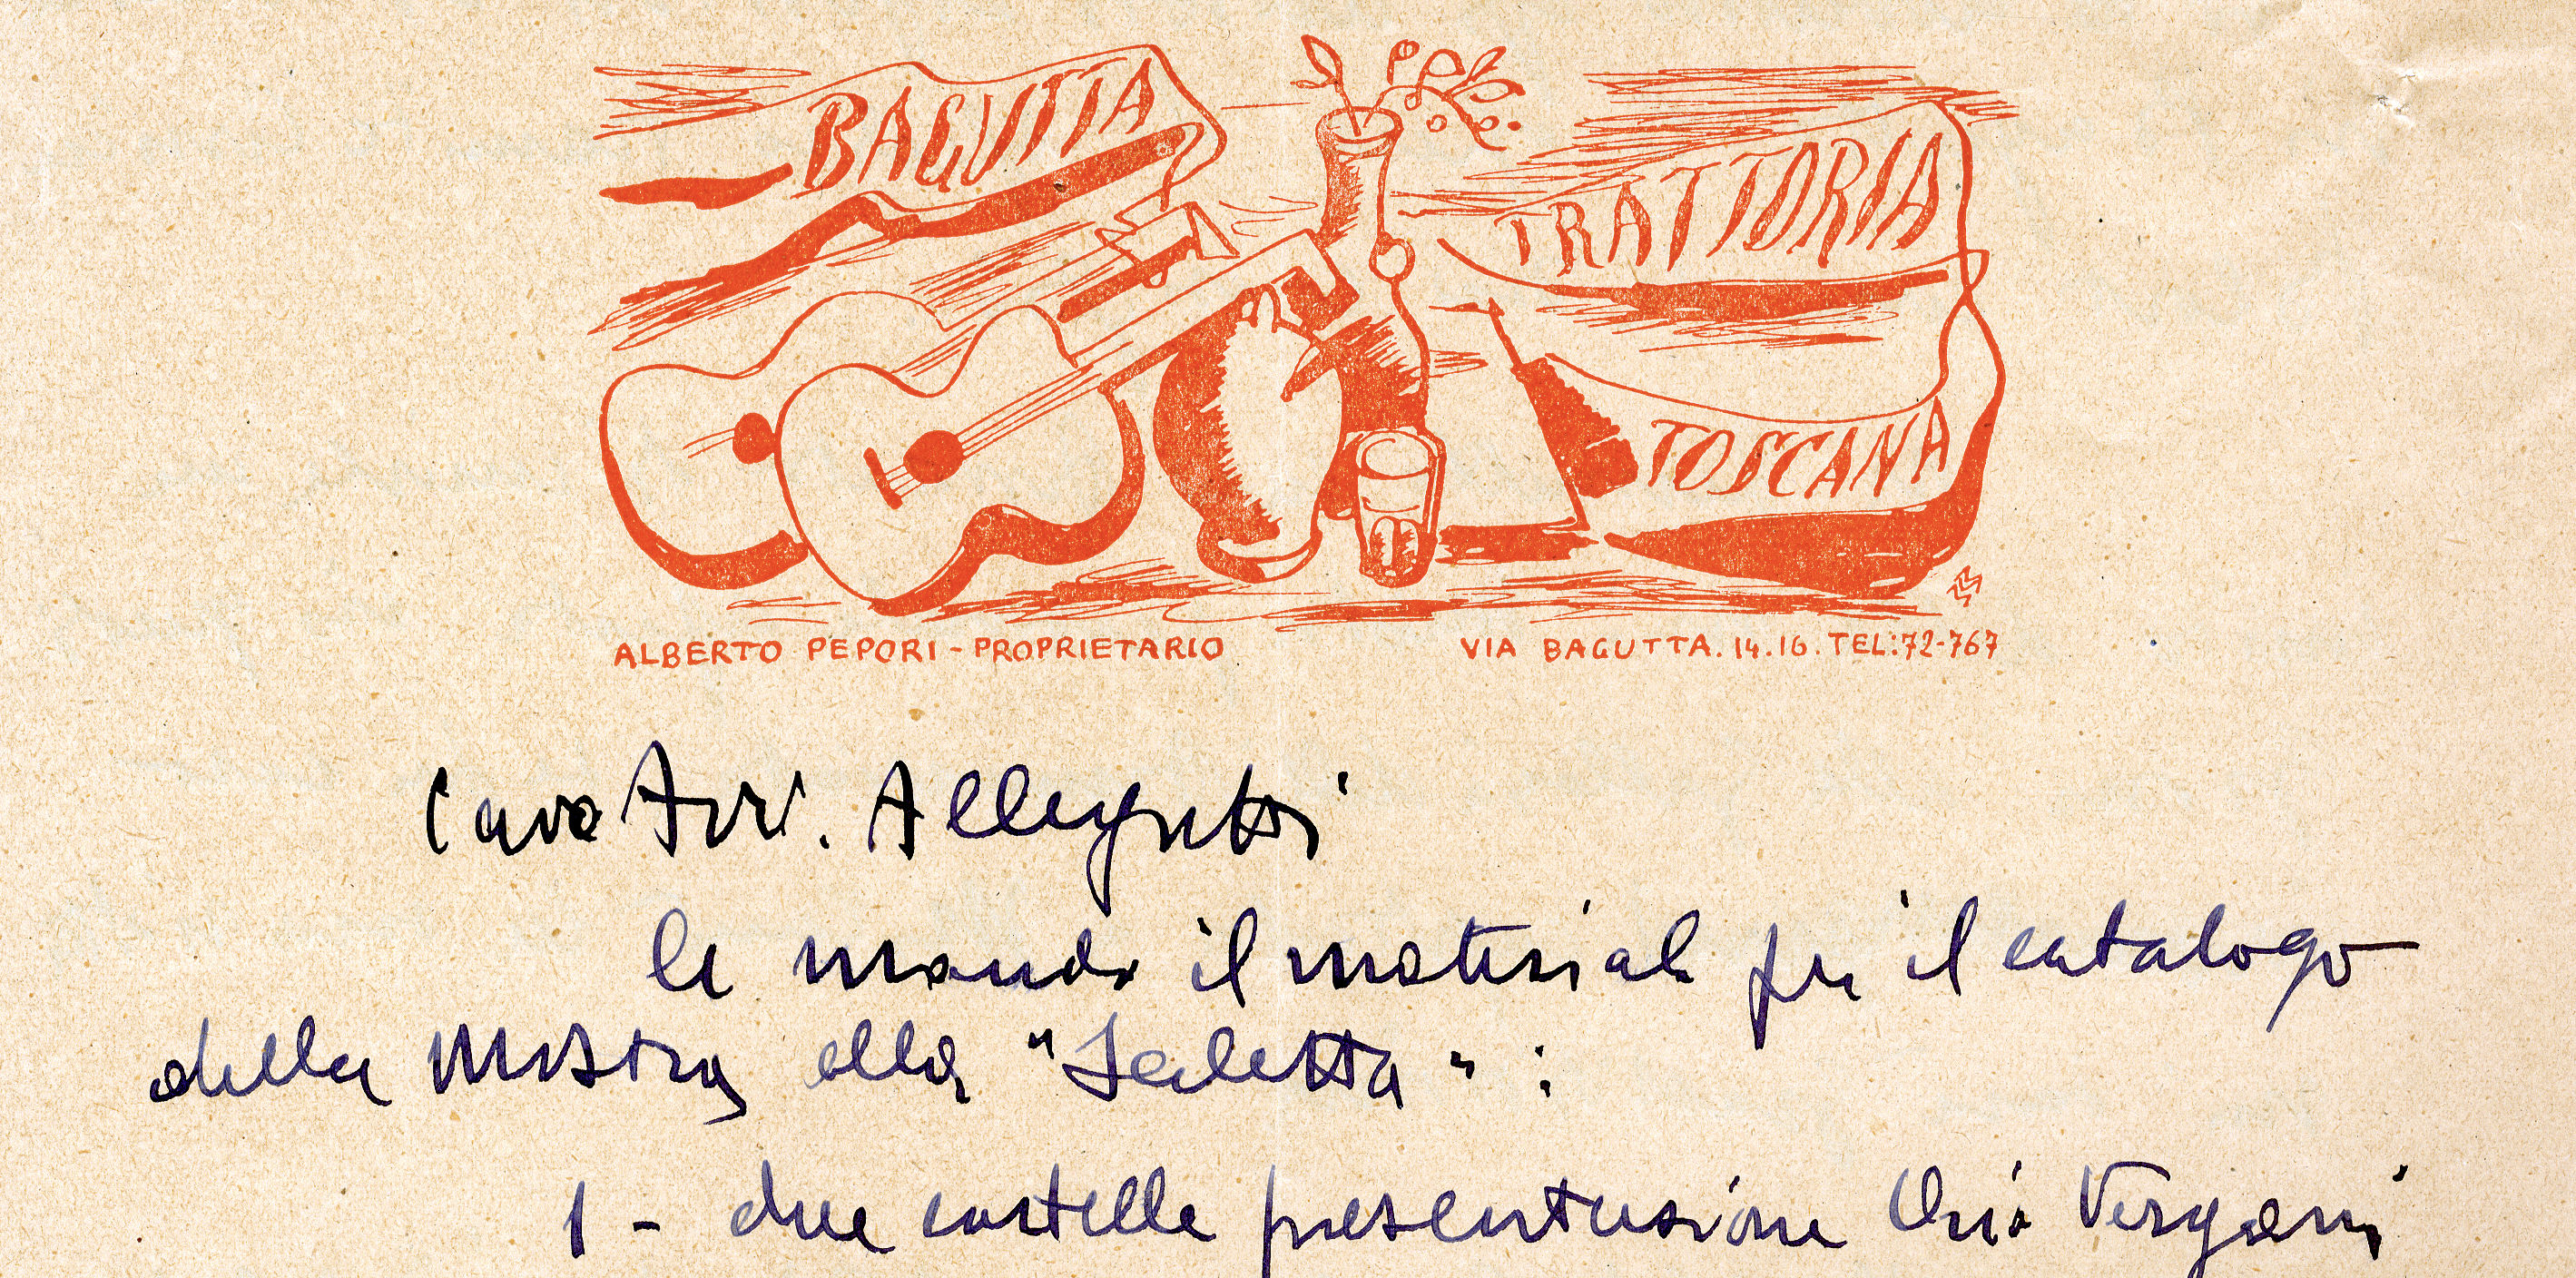 BAGUTTA
TRATTORIA
TOSCANA
ALBERTO PEPORI - PROPRIETARIO
VIA BAGUTTA. 14.16. TEL: 72-767
Caro Avv. Allegretti
le mando il materiale per il catalogo
della Mostra alla "Saletta" :
1 - due cartelle presentazione Orio Vergani